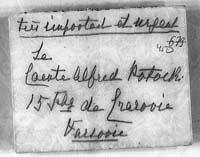 très important et urgent
Le
Comte Alfred Potocki
15 Fbg de Cracovie
Varsovie